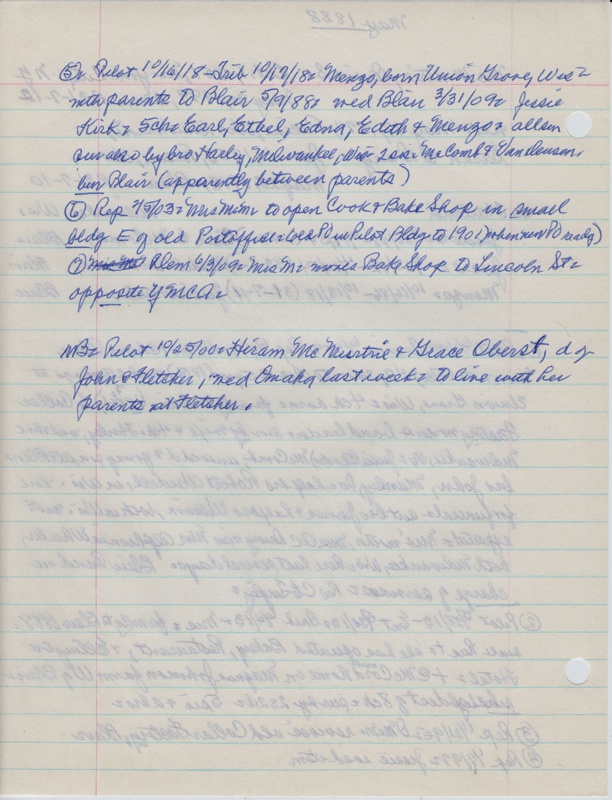 ⑤ Pilot 10/16/18 – Trib 10/17/18 = Menzo, born Union Grove, Wis =
with parents to Blair 5/9/88 = wed Blair 3/31/09 = Jessie
Kirk = 5ch = Earl, Ethel, Edna, Edith & Menzo = all sm
sur also by bro Harley, Milwaukee, Wis = 2 sis = McComb & Van Deusen.
bur Blair (apparently between parents)
⑥ Rep 7/5/03 = Mrs McM to open Cook & Bake Shop in small
bldg E of old Postoffice = (old PO in Pilot Bldg to 1901 when new PO ready)
⑦ Dem 6/3/09 = Mrs Mc moves Bake Shop to Lincoln St =
opposite YMCA =
NB = Pilot 10/25/00 = Hiram McMurtrie & Grace Oberst, d of
John @ Fletcher, wed Omaha last week = To live with her
parents at Fletcher.